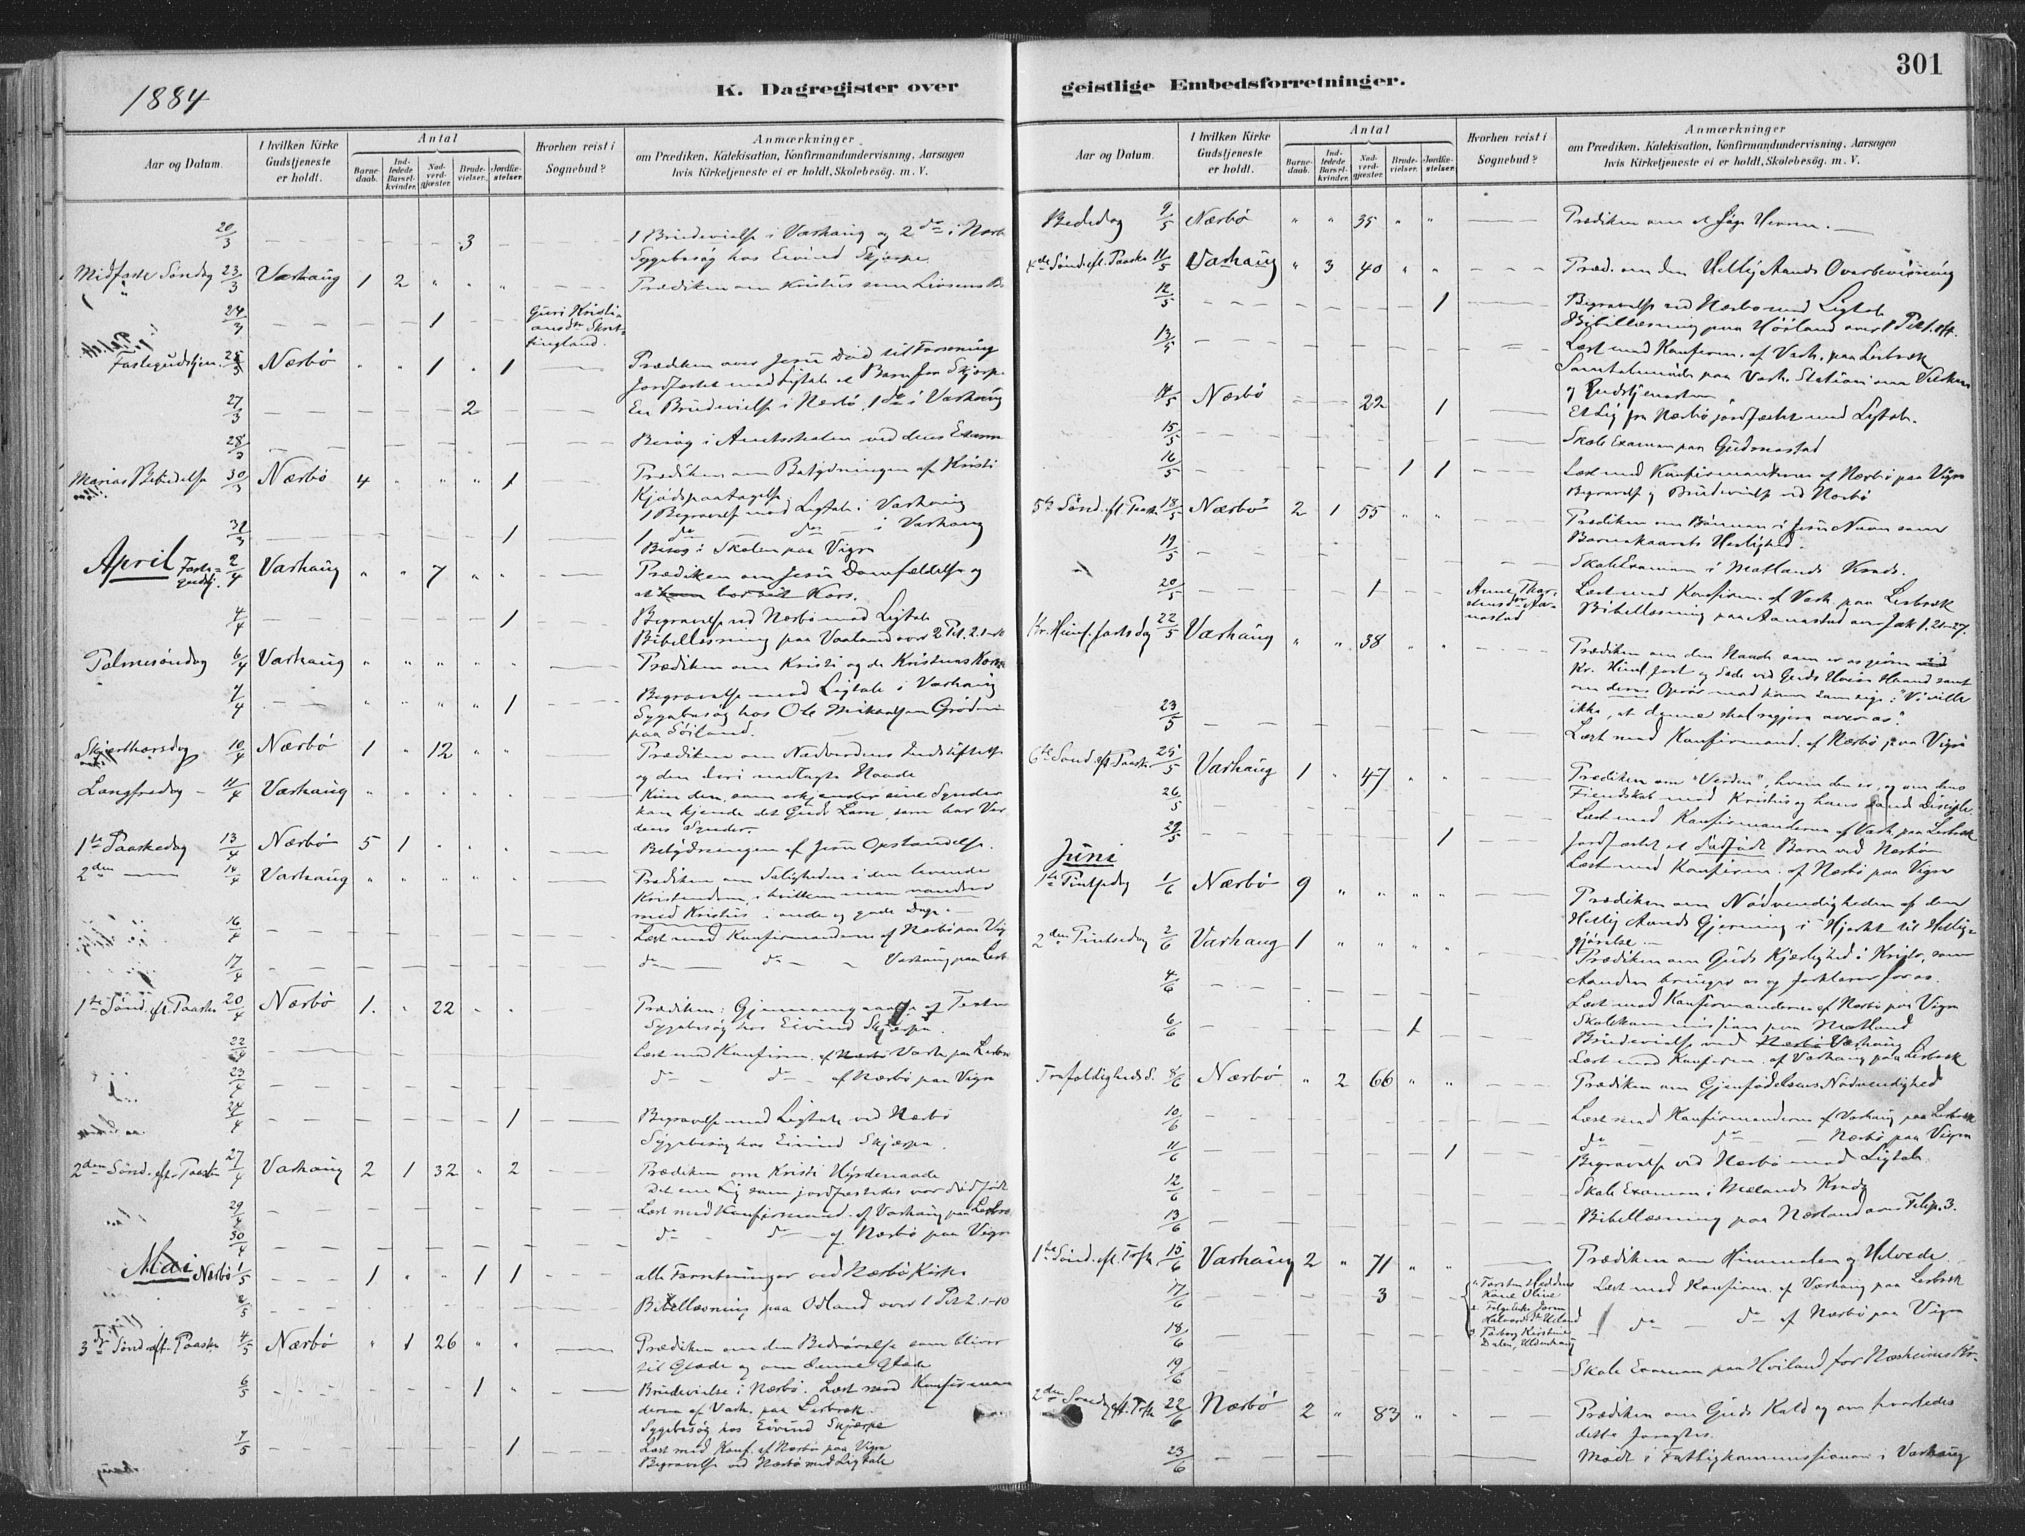 301
1884
K. Dagregister over geistlige Embedsforretninger.
Aar og Datum.
I hvilken Kirke Gudstjeneste er holdt.
Antal
Barnedaab.
Indledede Barselkvinder.
Nadverdgjæster.
Brudevielser.
Jordfæstelser.
Hvorhen reist i Sognebud?
Anmærkninger
om Prædiken, Katekisation, Konfirmandundervisning, Aarsagen
hvis Kirketjeneste ei er holdt, Skolebesøg. m. V.
20/3 3 1 Brudevielse i Varhaug og 2 do i Nærb
Sygebesøg hos Eivind Skjærpe
Midfaste Søndag 23/3 Varhaug 1 2 " " " Prædiken om Kristus som Livsens B
24/3 1 Guri Kristiansdtr
Fastegudstjen. 25/3 Nærbø " " 1 " 1 Prædiken over Jesu Død til Forsoning
Jordfæstet med Ligtale et Barn fra Skjærpe
27/3 2 En Brudevielse i Nærbø, 1 do i Varhaug
28/3 Besøg i Amtsskolen ved dens Exam
Marias Bebudelse 30/3 Nærbø 4 " " " 1 Prædiken om Betydningen af Kristi
Kjødspaatagelse
1 Begravelse med Ligtale i Varhaug
31/3 1 1 do do i Varhaug
Besøg i Skolen paa Vigre
April Fastegudstj. 2/4 Varhaug " " 7 " " Prædiken om Jesu Domfældelse og
Kors.
4/4 1 Begravelse ved Nærbø med Ligtale
Bibellæsning paa Vaaland over 2 Pet. 2.1-
Palmesøndag 6/4 Varhaug " " " " " Prædiken om Kristi og de Kristnes Kors
7/4 " " " " 1 Begravelse med Ligtale i Varhaug
Sygebesøg hos Ole Mikkelsen
paa Søiland.
Skjærthorsdag 10/4 Nærbø 1 " 12 " " Prædiken om Nadverdens Indstiftelse
og den deri modtagte Naade
Langfredag 11/4 Varhaug " " " " " Kun den, som erkjender sine Synder
kan kjende det Guds Lam, som bar Ver
dens Synder.
1te Paaskedag 13/4 Nærbø 5 1 " " " Betydningen af Jesu Opstandelse.
2den 14/4 Varhaug " " " " " Prædiken om Saligheden i den levende
Kristendom, i hvilken man vandrer
med Kristus i onde og gode Dage.
16/4 Læst med Konfirmanderne af Nærbø paa Vig
17/4 do do Varhaug paa Lerb
1te Sønd. eft. Paaske 20/4 Nærbø 1. " 22 " " Prædiken: Gjennemgaaelse af Texten
Sygebesøg hos Eivind Skjærpe.
22/4 Læst med Konfirm. af Nærbø Varh. paa Lerbr
23/4 do do af Nærbø paa Vigre
24/4 1 Begravelse med Ligtale ved Nærbø
Sygebesøg hos Eivind Skjærpe.
2den Sønd. eft. Paaske 27/4 Varhaug 2 1 32 " 2 Prædiken om Kristi Hyrdenaade
Det ene Lig som jordfæstedes var dødfødt
29/4 Læst med Konfirmand. af Varhaug paa Lerbr
30/4 do do af Nærbø paa Vigre
Mai Nærbø 1/5 1 " " 1 1 alle Forretninger ved Nærbø Kirke
2/5 Bibellæsning paa Odland over 1 Pet 2.1-10
3die Sønd. eft. Paaske 4/5 Nærbø " 1 26 " " Prædiken om den Bedrøvelse som bliver
til Glæde og om denne Glæde
6/5 1 " Brudevielse i Nærbø. Læst med Konfirman
derne af Varh. paa Lerbræk.
Sygebesøg hos Eivind Skjærpe
7/5 1 Læst med Konf. af Nærbø paa Vigre
Begravelse ved Nærbø med Ligtale
Aar og Datum.
I hvilken Kirke Gudstjeneste er holdt.
Antal
Barnedaab.
Indledede Barselkvinder.
Nadverdgjæster.
Brudevielser.
Jordfæstelser.
Hvorhen reist i Sognebud?
Anmærkninger
om Prædiken, Katekisation, Konfirmandundervisning, Aarsagen
hvis Kirketjeneste ei er holdt, Skolebesøg. m. V.
Bededag 9/5 Nærbø " " 35 " " Prædiken om at søge Herren.
4de Sønd. eft. Paaske 11/5 Varhaug " 3 40 " " Præd. om den Hellig Aands Overbevisning
12/5 1 Begravelse ved Nærbø med Ligtale
Bibellæsning paa Høiland over 1 Pet.
13/5 Læst med Konfirm. af Varh. paa Lerbræk
Samtalemøde paa Varh. Station om
og Gudstjenesten
14/5 Nærbø 22 1 Et Lig fra Nærbø jordfæstet med Ligtale.
15/5 Skole Examen paa Gudmestad
16/5 1 1 Læst med Konfirmanterne af Nærbø paa Vigre
Begravelse og Brudevielse ved Nærbø
5te Sønd. eft. Paaske 18/5 Nærbø 2 1 55 " " Prædiken om Bønnen i Jesu Navn som
Barnekaarets Herlighed.
19/5 Skole Examen i Motlands Kreds.
20/5 1 Læst med Konfirm. af Varh. paa Lerbræk
Bibellæsning paa Aanestad over Jak 1.21-27.
Kr. Himf. farts dag 22/5 Varhaug " " 38 " " Prædiken om den Naade som er os given ved
Kr. Himl.fart og Sæde ved Guds Høire Haand samt
om deres Oprør mod ham som sige: "Vi ville
ikke, at denne skal regjere over os".
23/5 Læst med Konfirmand. af Nærbø paa Vigre
6te Sønd. eft. Paaske 25/5 Varhaug 1 " 47 " " Prædiken om "Verden", hvem den er, og om dens
Fiendskab mod Kristus og hans sande Disciple
26/5 Læst med Konfirmanderne af Varh. paa Lerbræk
29/5 1 Jordfæstet et dødfødt Barn ved Nærbø
Læst med Konfirm. af Nærbø paa Vigre
Juni
1te Pintsedag 1/6 Nærbø 9 " " " " Prædiken om Nødvendigheden af den
Hellig Aands Gjerning i Hjertet til Hellig-
gjørelse.
2den Pintsedag 2/6 Varhaug 1 " " " " Prædiken om Guds Kjærlighed i Kristo, som
Aanden bringer os og forklarer for os.
4/6 Læst med Konfirmanderne af Nærbø paa Vigre
Skolekommission paa Motland
6/6 1 Brudevielse ved Nærbø Varhaug
Læst med Konfirm. af Varhaug paa Lerbræk
Trefoldigheds S. 8/6 Nærbø " 2 66 " " Prædiken om Gjenfødelsens Nødvendighed
10/6 Læst med Konfirmanderne af Varhaug paa Lerbræk
11/6 1 do do Nærbø paa Vigre
Begravelse ved Nærbø med Ligtale.
12/6 Skole Examen i Mælands Kreds
13/6 Bibellæsning paa Nærland over Filip. 3.
1te Sønd. eft. Tref. 15/6 Varhaug 2 " 71 " " Prædiken om Himmelen og Helvede.
17/6 3 Læst med Konfirm. af Varhaug paa Lerbræk
18/6 do do af Nærbø paa Vigre
19/6 Skole Examen paa Høiland for Næsheims Kr.
2den Søndag eft. Tref. 22/6 Nærbø 2 " 83 " " Prædiken om Guds Kald og om hvorledes
dette foragtes.
23/6 Møde i Fattigkommissionen i Varhaug